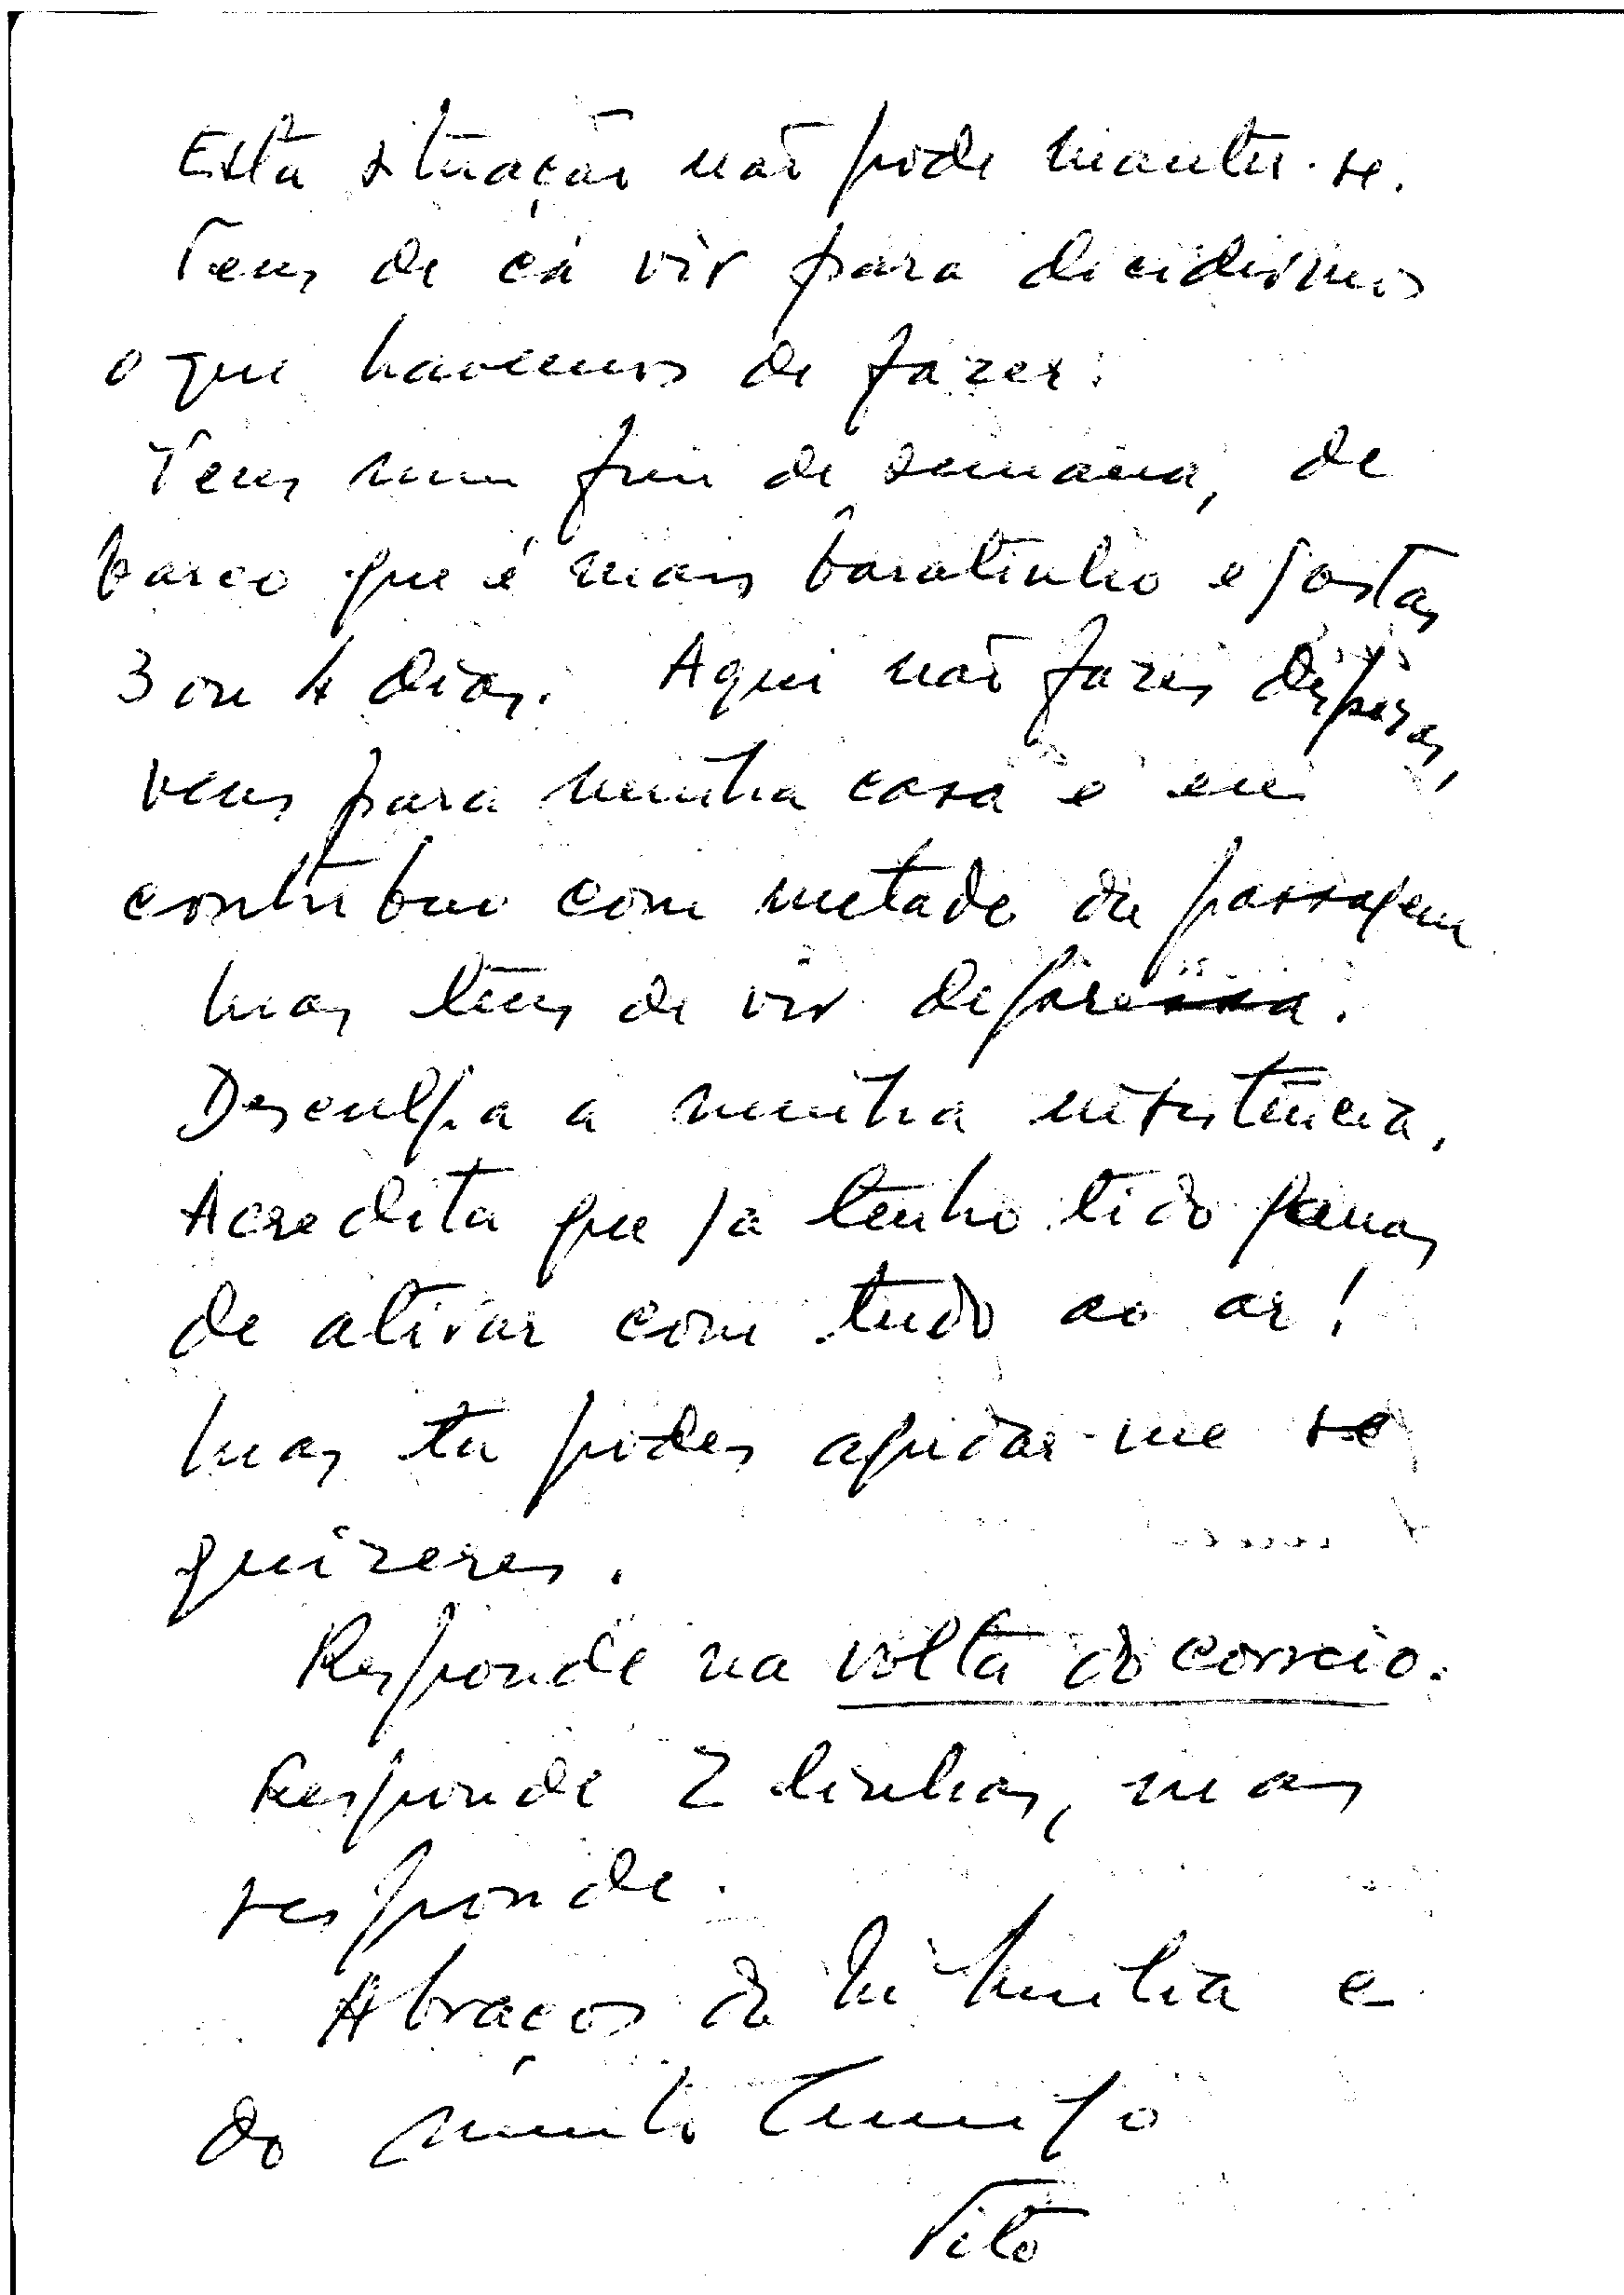 Esta situação não pode manter-se.
Tens de cá vir para decidirmos
o que havemos de fazer.
Vens num fim de semana, de
barco que é mais baratinho e gastas
3 ou 4 dias. Aqui não fazes despesas,
vens para minha casa e eu
contribuo com metade da passagem
mas tens de vir depressa.
Desculpa a minha insistência.
Acredita que já tenho tido ganas
de atirar com tudo ao ar!
Mas tu podes ajudar-me se
quizeres.
Responde na volta do correio.
Responde 2 linhas, mas
responde.
Abraços da minha e
do muito amigo